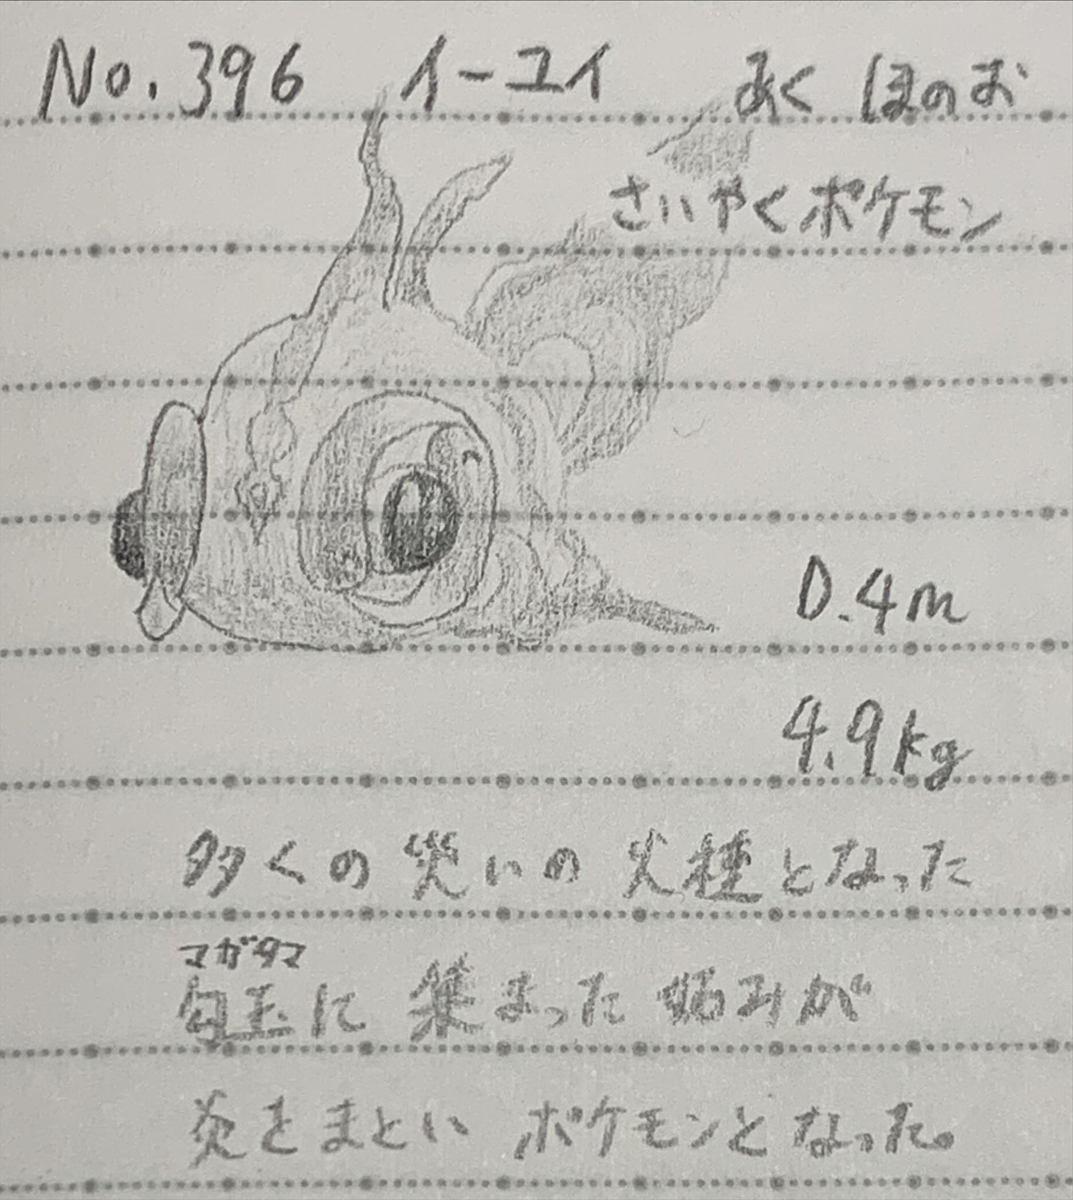 No.396 イーユイ あく ほのお
さいやくポケモン
0.4m
4.9kg
多くの災いの火種となった
マガタマ
勾玉に集まった妬みが
炎をまといポケモンとなった。